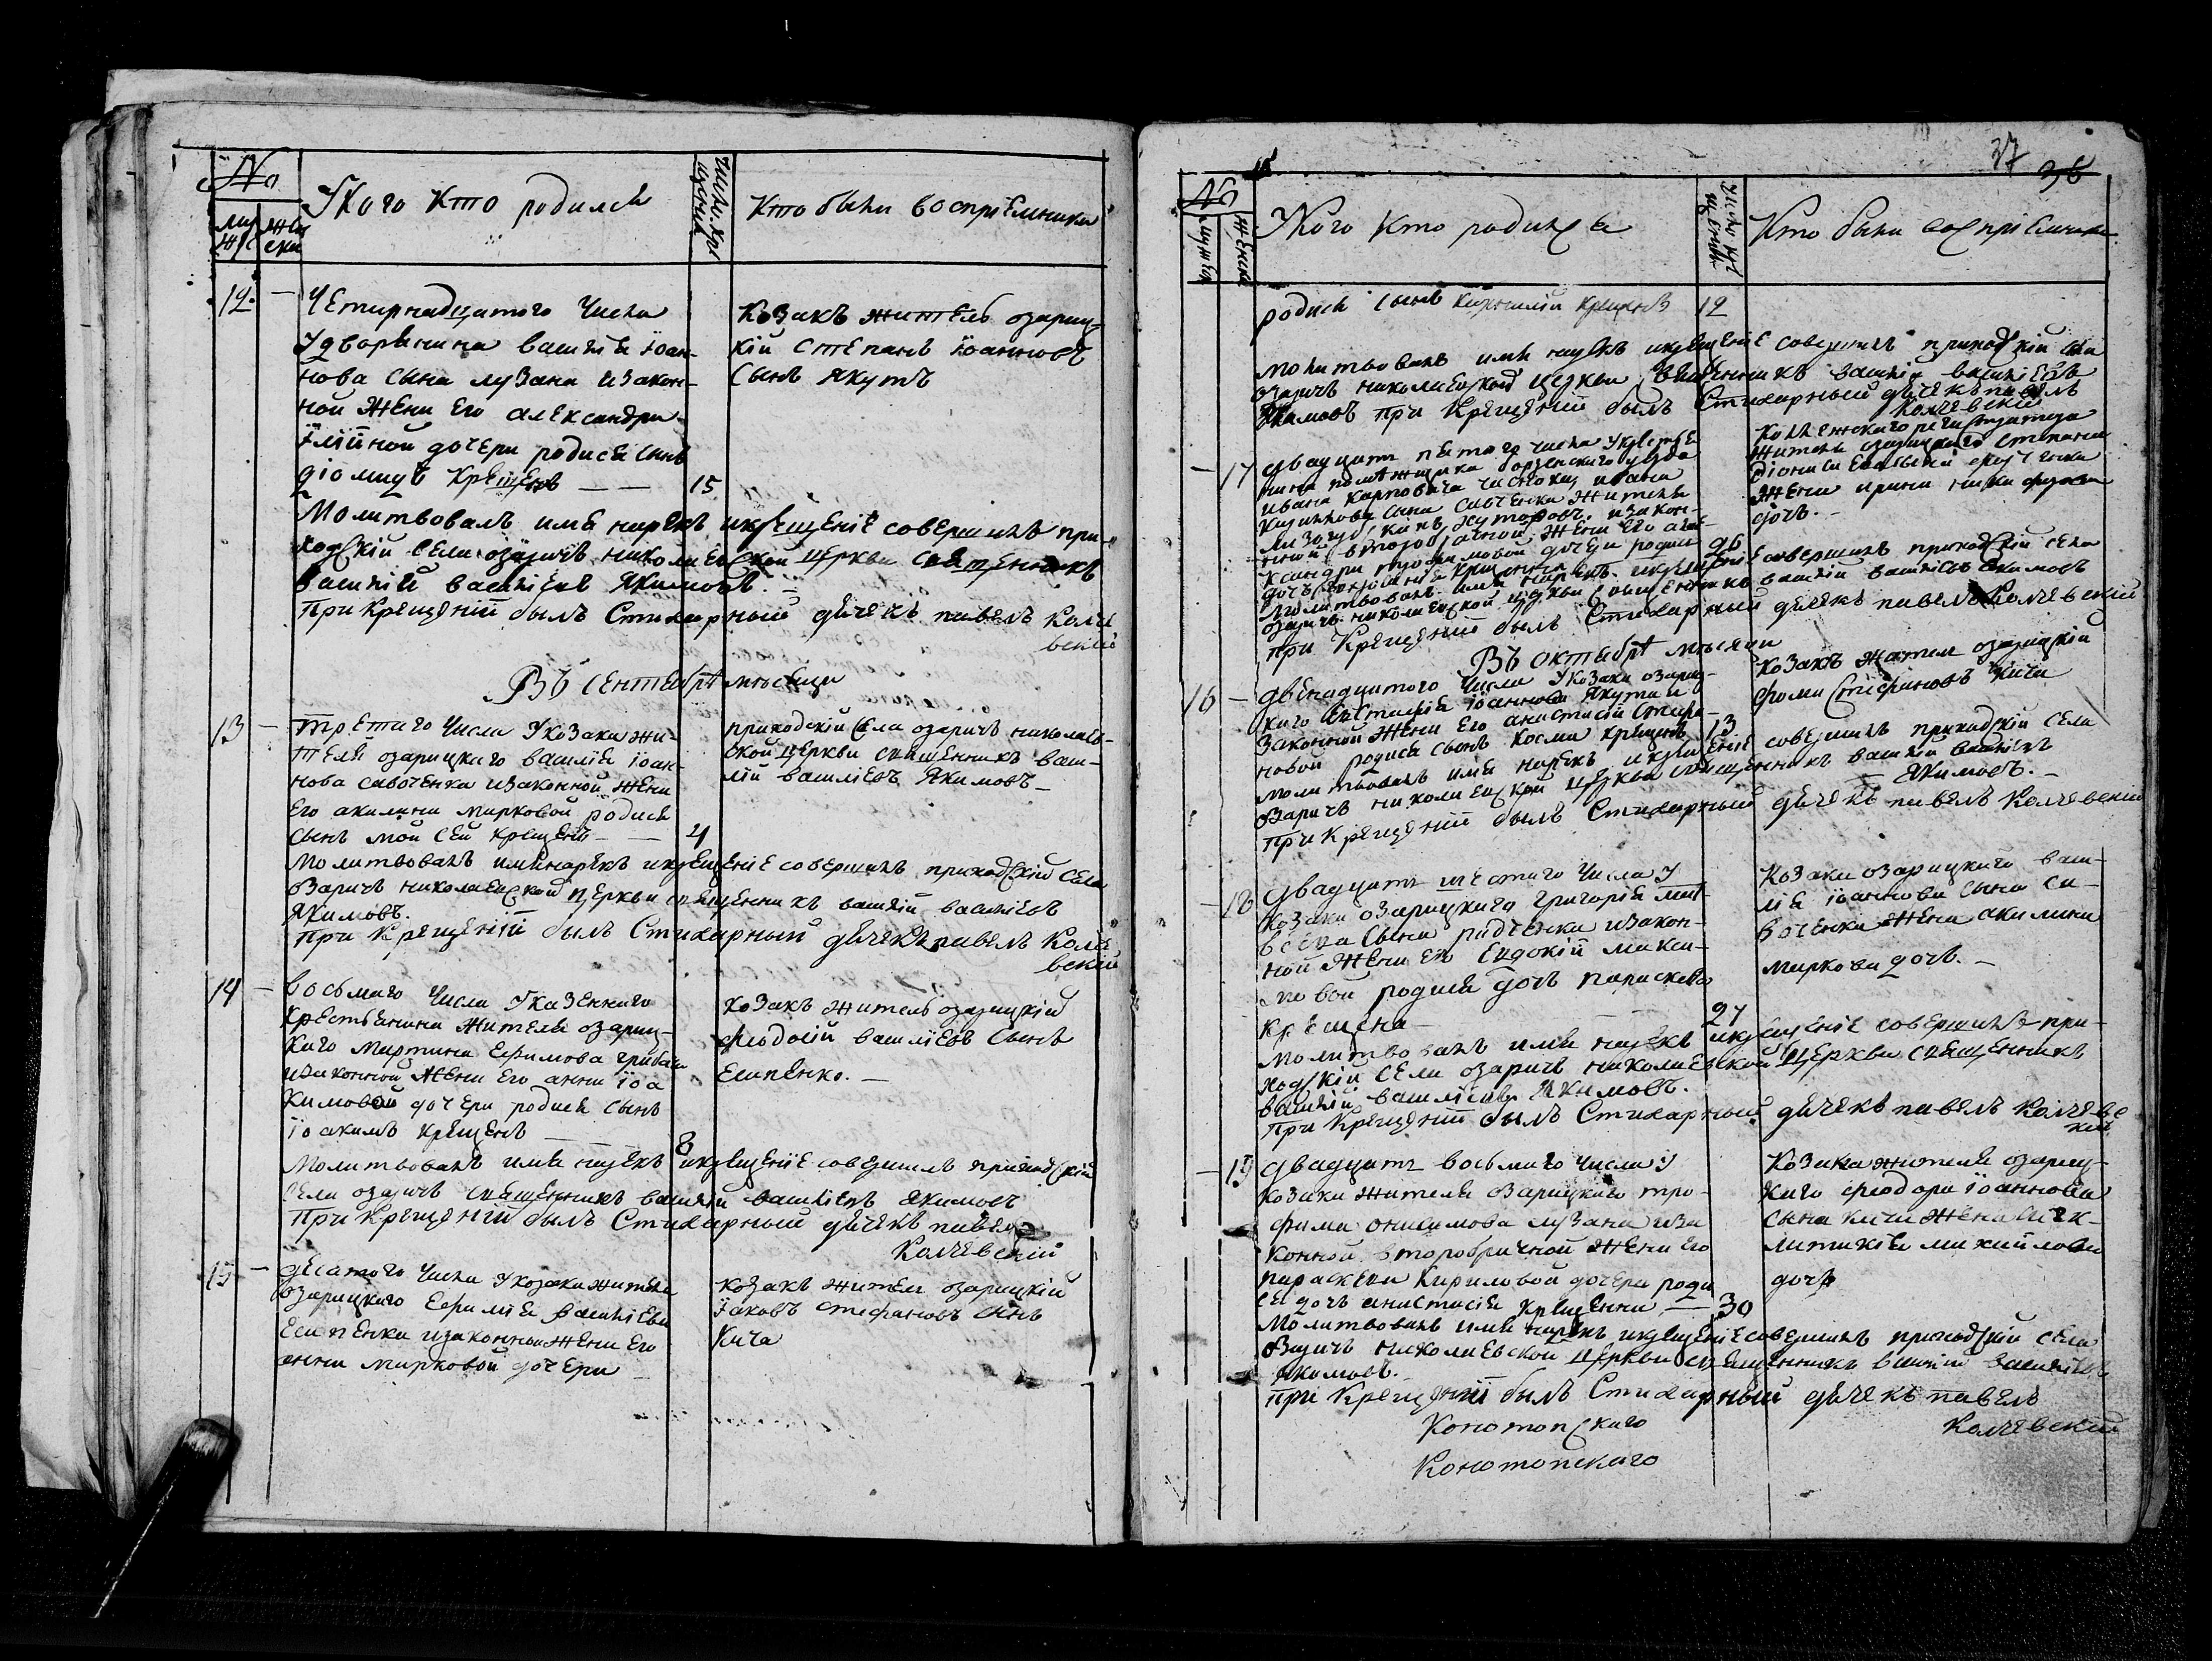 №
Муж
Женск
У Кого кто родился
Число крещения
Кто были воспріемники
12 –
Четирнадцатого Числа
У дворянина василія Іоан-
нова сына лузана изакон-
ной жени Его александри
Іліиной дочери родися сынъ
діомидъ Крещенъ — — 15
Козакъ житель озариц-
кій Степанъ Іоанновъ
Сынъ Якутъ
Молитвовалъ имя нарекъ икрещеніе совершилъ при-
ходскій Села озаричъ николаевской церкви священникъ
василій василіевъ Якимовъ. –
При Крещеніи былъ Стихарный дячекъ павелъ Колче
вскій
Въ Сентябрѣ мѣсяци
13 –
третаго Числа У козака жи-
теля озарицкого василія іоан-
нова савоченка изаконной жени
Его акилини марковой родися
сынъ моисей крещенъ — — 4
приходскій Села озаричъ николаев-
ской церкви священникъ васи-
лій василіевъ Якимовъ –
Молитвовалъ имя нарекъ икрещеніе совершилъ приходскій Села
Озаричъ николаевской церкви священникъ василій василіевъ
Якимовъ.
При Крещеніи былъ Стихарный дячекъ павелъ Колче
вскій
14 –
восьмаго Числа У казенного
крестьянина жителя озариц-
кого мартина Ефимова грибая
изаконной жени Его анни іоа
кимовой дочери родися сынъ
іоакимъ крещенъ — 8
козакъ житель озарицкій
феодосій василіевъ Сынъ
Есипенко. –
Молитвовалъ имя нарекъ икрещеніе совершилъ приходскій
Села озаричъ священникъ василій василіевъ Якимовъ
При Крещеніи былъ Стихарный дячекъ павелъ
Колчевскій
15 –
десятого Числа У козака жителя
озарицкого Ефимія василіева
Есипенка изаконной жени Его
анни марковой дочери
козакъ житель озарицкій
Іаковъ стефановъ Сынъ
Кича
37
38
№
Мужеск
Женска
У Кого кто родился
Число крещения
Кто были воспріемники
родися сынъ Крещенъ 12
Молитвовалъ имя нарекъ икрещеніе совершилъ приходскій села
озаричъ николаевской церкви священникъ василій василіевъ
Якимовъ при Крещеніи былъ Стихарный дячекъ павелъ
Колчевскій
– 17
двадцять пятого числа У
помѣщика борзенского уезда
ивана карповича ивана
сына савченка жителя
хуторовъ. изакон-
ной второбрачной жени его але-
ксандри дочери родися
дочъ Крещенна 26
Колежского регистратора
жителя озарицкого Степана
жена ирина
дочъ. –
Молитвовалъ имя нарекъ икрещеніе совершилъ приходскій села
озаричъ николаевской церкви священникъ василій василіевъ Якимовъ
при Крещеніи былъ Стихарный дячекъ павелъ Колчевскій
Въ октябрѣ мѣсяци
16 –
двенадцатого Числа У козака озариц-
кого Евстафія Іоаннова Якута и
законной жени Его анастасіи стефа-
новой родися сынъ косма крещенъ 13
козакъ жител озарицкій
фома Стефановъ Кича
Молитвовалъ имя нарекъ икрещеніе совершилъ приходскій села
Озаричъ николаевской церкви священникъ василій василіевъ
Якимовъ. –
при Крещеніи былъ Стихарный дячекъ павелъ Колчевскій
– 18
двадцять шестаго Числа У
козака озарицкого Григорія мат-
веева сына радченка изакон-
ной жени его Евдокіи макси-
мовой родися дочъ параскева
крещена – 27
козака озарицкого васи-
лія іоаннова сына са-
воченка жена акилина
маркова дочъ. –
молитвовалъ имя нарекъ икрещеніе совершилъ при-
ходскій Села озаричъ николаевской церкви священникъ
василій василіевъ Якимовъ.
при Крещеніи былъ Стихарный дячекъ павелъ Колчевс
кій
– 19
двадцять восьмаго Числа У
козака жителя Озарицкого тро-
фима онисимова лузана иза
конной второбрачной жени его
параскеви Кириловой дочери роди
ся дочъ анастасія крещенна — 30
козака жителя озариц-
кого феодора іоаннова
сына кичи жена
михайлова
дочъ
Молитвовалъ имя нарекъ икрещеніе совершилъ приходскій села
Озаричъ николаевской церкви священникъ василій василіевъ
Якимовъ.
при Крещеніи былъ Стихарный дячекъ павелъ
Колчевскій
Конотопского
Конотопскаго